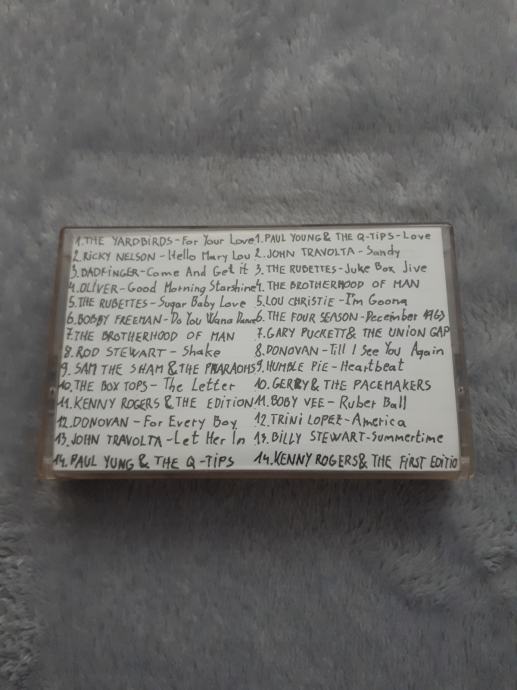 1.THE YARDBIRDS-For Your Love
2.RICKY NELSON-Hello Mary Lou
3.BADFINGER-Come And Get it
4.OLIVER-Good Morning Starshine
5.THE RUBETTES-Sugar Baby Love
6.BOBBY FREEMAN-Do You Wana Dance
7.THE BROTHERHOOD OF MAN
8.ROD STEWART-Shake
9.SAM THE SHAM & THE PHARAOHS
10.THE BOX TOPS-The Letter
11.KENNY ROGERS & THE EDITION
12.DONOVAN-For Every Boy
13.JOHN TRAVOLTA-Let Her In
14.PAUL YUNG & THE Q-TiPS
1.PAUL YOUNG & THE Q-TiPS-Love
2.JOHN TRAVOLTA-Sandy
3.THE RUBETTES-Juke Box Jive
4.THE BROTHERHOOD OF MAN
5.LOU CHRiSTiE-I'm Goona
6.THE FOUR SEASON-December 1963
7.GARY PUCKETT & THE UNION GAP
8.DONOVAN-Till I See You Again
9.HUMBLE PIE-Heartbeat
10.GERRY & THE PACEMAKERS
11.BOBY VEE-Ruber Ball
12.TRiNi LOPEZ-America
13.BILLY STEWART-Summertime
14.KENNY ROGERS & THE FiRST EDITIO